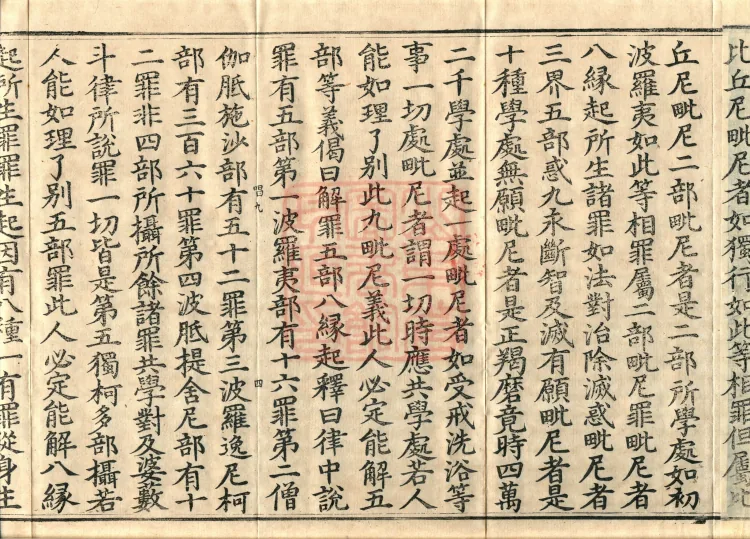 比丘尼毗尼者如獨行如此等相罪但屬比
丘尼毗尼二部毗尼者是二部所學處如初
波羅夷如此等相罪屬二部毗尼罪毗尼者
八緣起所生諸罪如法對治除滅惑毗尼者
三界五部惑九永斷智及滅有願毗尼者是
十種學處無願毗尼者是正羯磨竟時四萬
二千學處並起一處毗尼者如受戒洗浴等
事一切處毗尼者謂一切時應共學處若人
能如理了別此九毗尼義此人必定能解五
部等義偈曰解罪五部八緣起釋曰律中說
罪有五部第一波羅夷部有十六罪第二僧
唱九 四
伽胝施沙部有五十二罪第三波羅逸尼柯
部有三百六十罪第四波胝提舍尼部有十
二罪非四部所攝所餘諸罪共學對及婆藪
斗律所說罪一切皆是第五獨柯多部攝若
人能如理了別五部罪此人必定能解八緣
起所生罪罪生起因有八種一有罪從身生